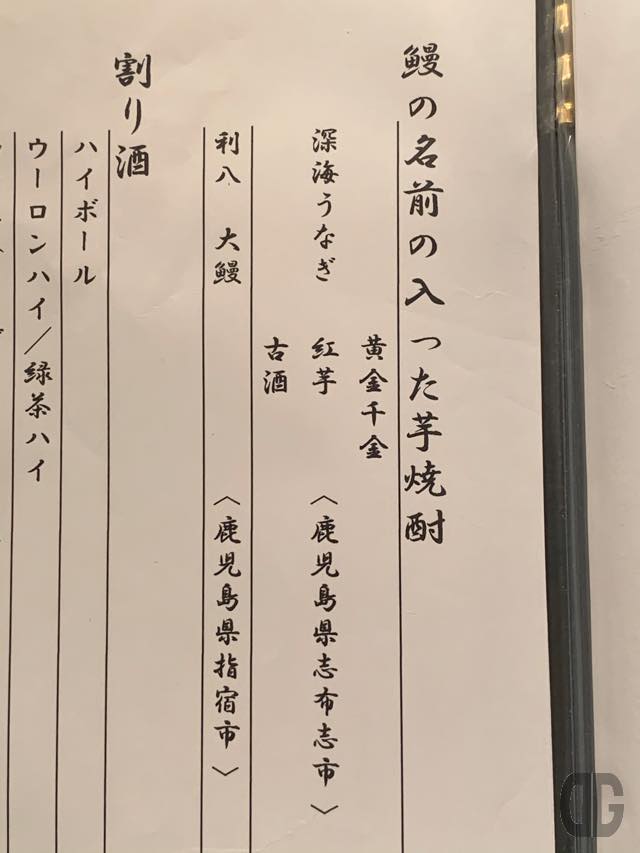 鰻の名前の入った芋焼酎
黄金千金
深海うなぎ 紅芋 〈鹿児島県志布志市〉
古酒
利八 大鰻 〈鹿児島県指宿市〉
割り酒
ハイボール
ウーロンハイ/緑茶ハイ
DG